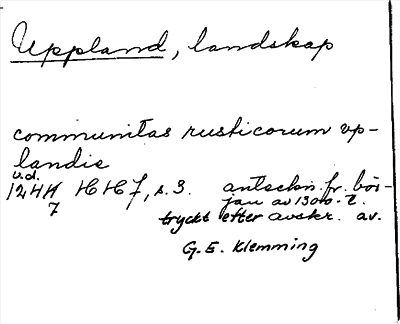 Uppland, landskap
communitas rusticorum vp-
landie
u.d.
1244 HHJ, s. 3. anteckn. fr. bör-
7 jan av 1300-t.
tryckt efter avskr. av.
G. E. Klemming